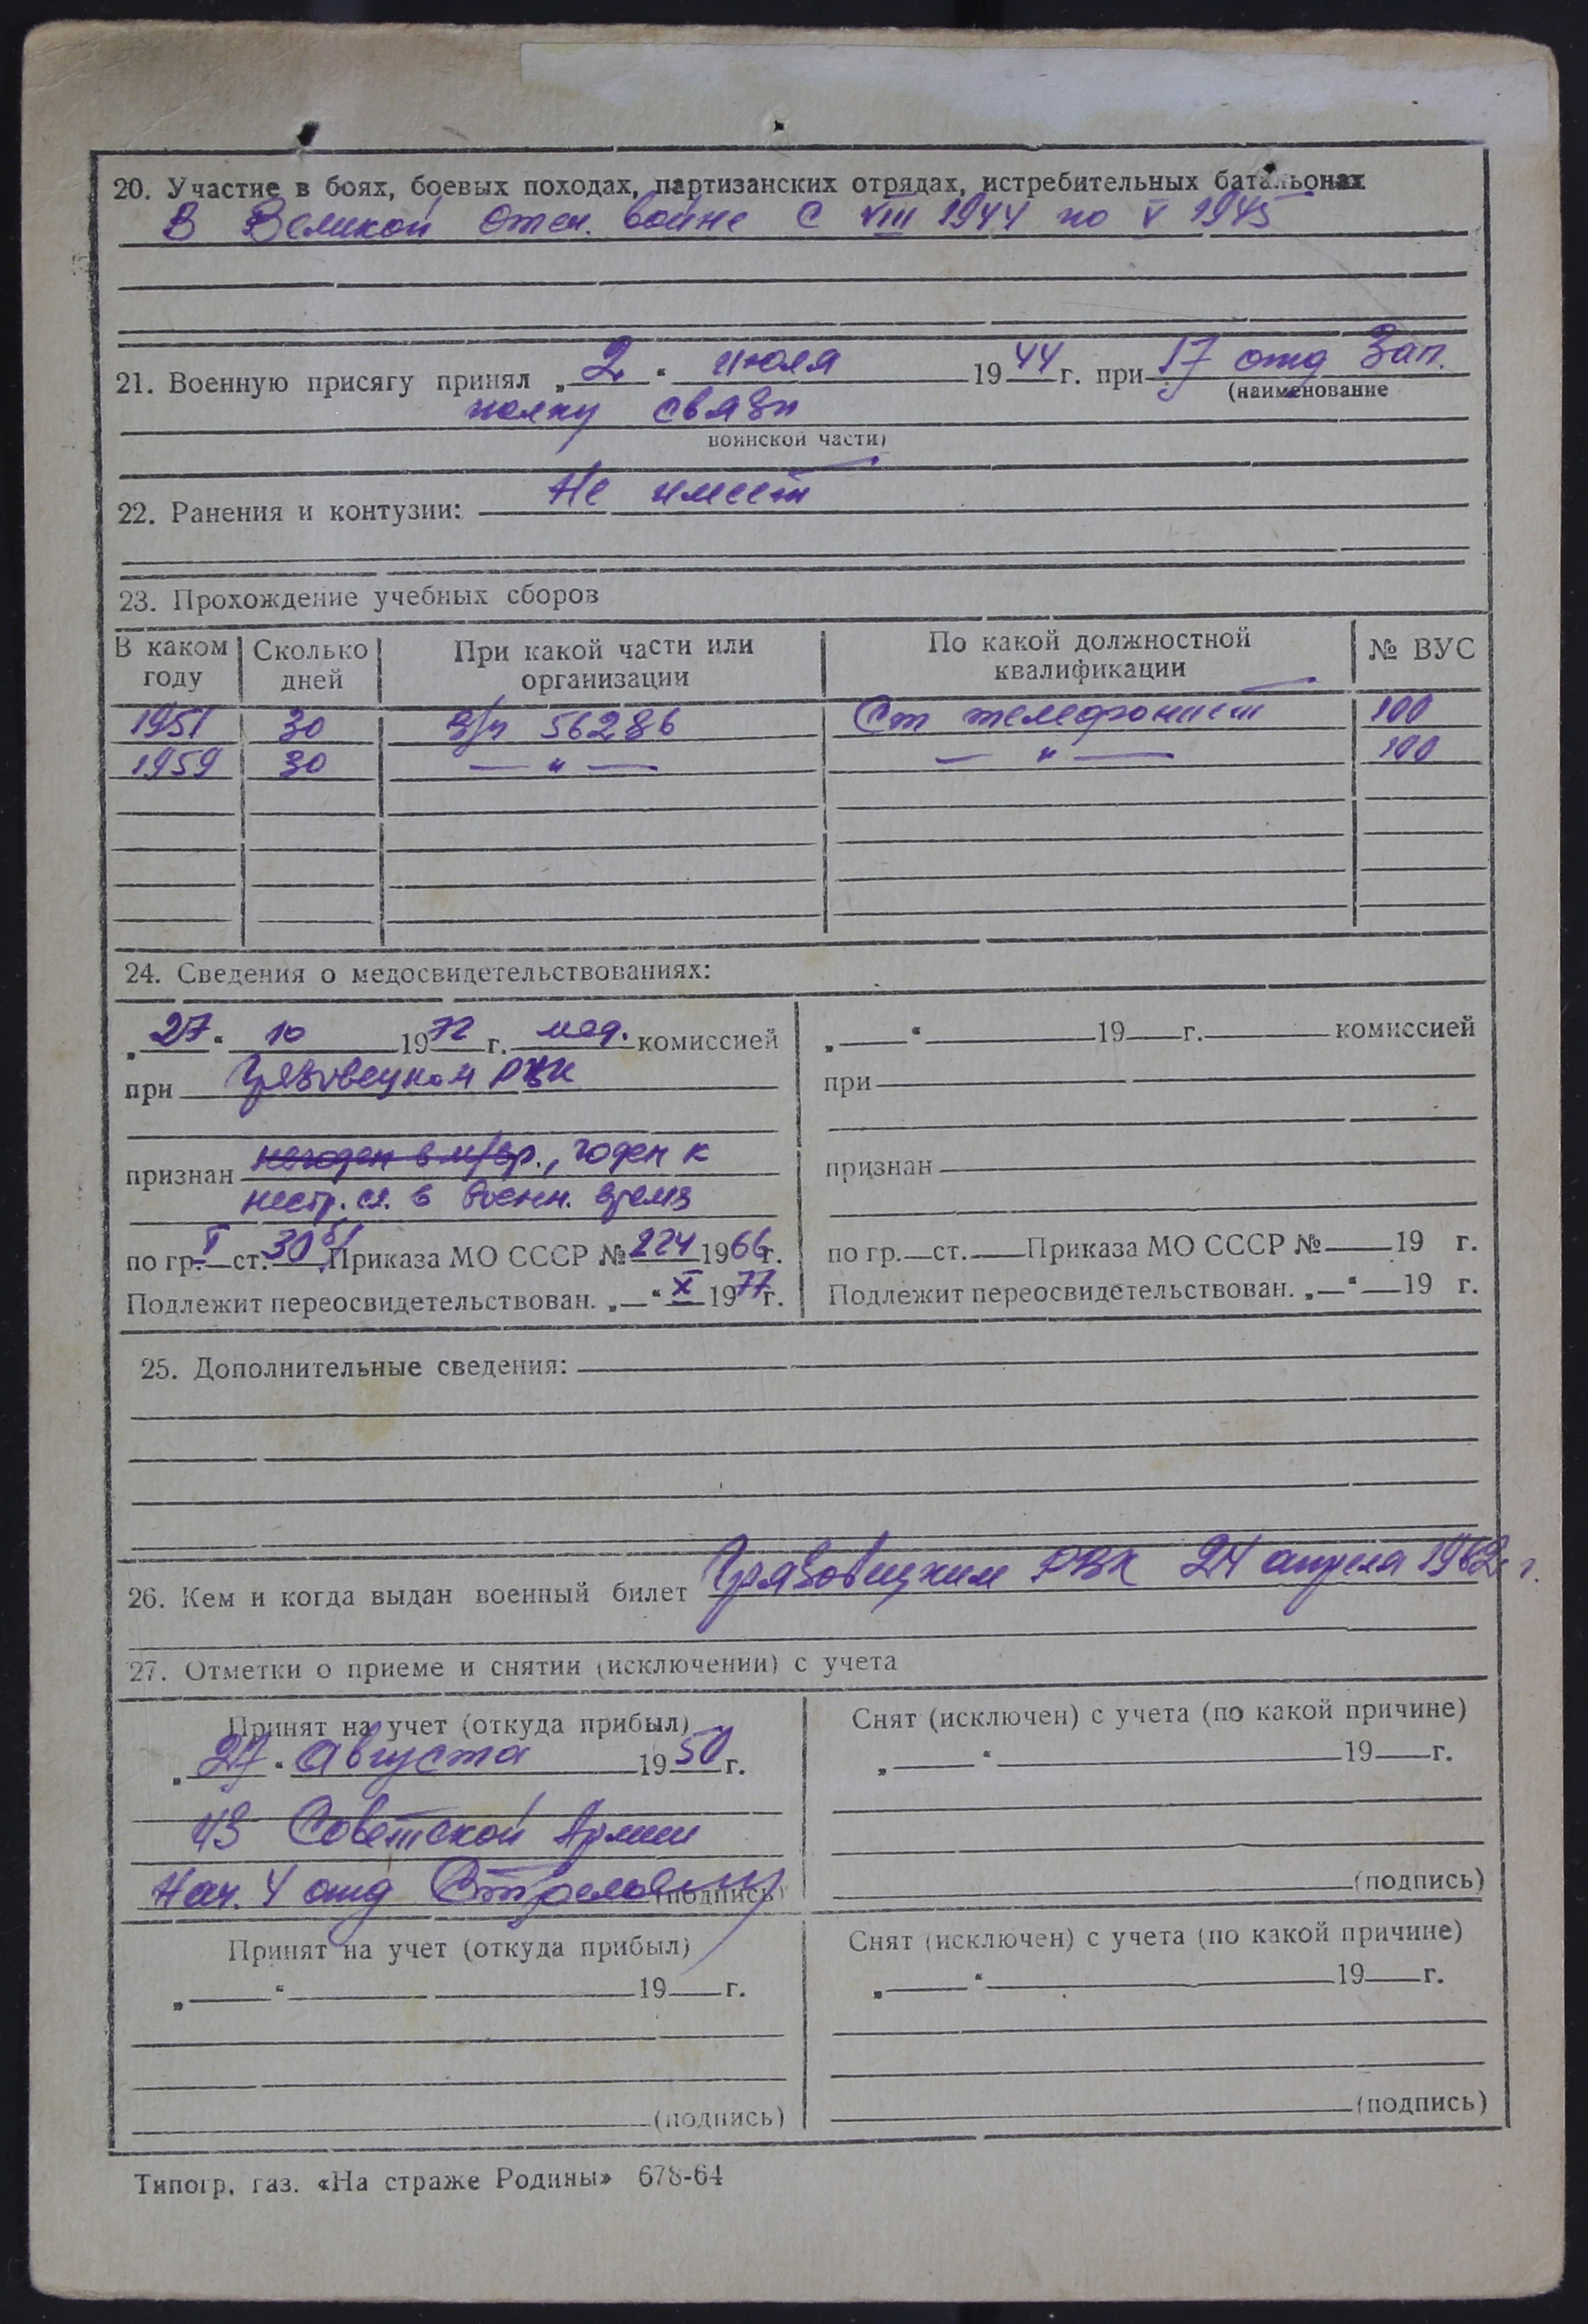 20. Участие в боях, боевых походах, партизанских отрядах, истребительных батальонах
В Великой Отеч. войне с VIII 1944 по V 1945
21. Военную присягу принял „2“ июля 1944 г. при 17 отд Зап.
(наименование
полку связи
воинской части)
22. Ранения и контузии: Не имеет
23. Прохождение учебных сборов
В каком году | Сколько дней | При какой части или организации | По какой должностной квалификации | № ВУС
1951 30 в/ч 56286 Ст телефонист 100
1959 30 — " — — " — 100
24. Сведения о медосвидетельствованиях:
„27“ 10 1972 г. мед. комиссией
при Грязовецком РВК
признан негоден в м/вр., годен к
нестр. сл. в военн. время
по гр. I ст. 30 Приказа МО СССР № 224 1966 г.
Подлежит переосвидетельствован. „—“ X 1977 г.
„—“ 19 г. комиссией
при
признан
по гр. ст. Приказа МО СССР № 19 г.
Подлежит переосвидетельствован. „—“ 19 г.
25. Дополнительные сведения:
26. Кем и когда выдан военный билет Грязовецким РВК 24 апреля 1962 г.
27. Отметки о приеме и снятии (исключении) с учета
Принят на учет (откуда прибыл)
„27“ Августа 1950 г.
из Советской Армии
Нач. 4 отд
(подпись)
Снят (исключен) с учета (по какой причине)
„ “ 19 г.
(подпись)
Принят на учет (откуда прибыл)
„ “ 19 г.
(подпись)
Снят (исключен) с учета (по какой причине)
„ “ 19 г.
(подпись)
Типогр. газ. «На страже Родины» 678-64